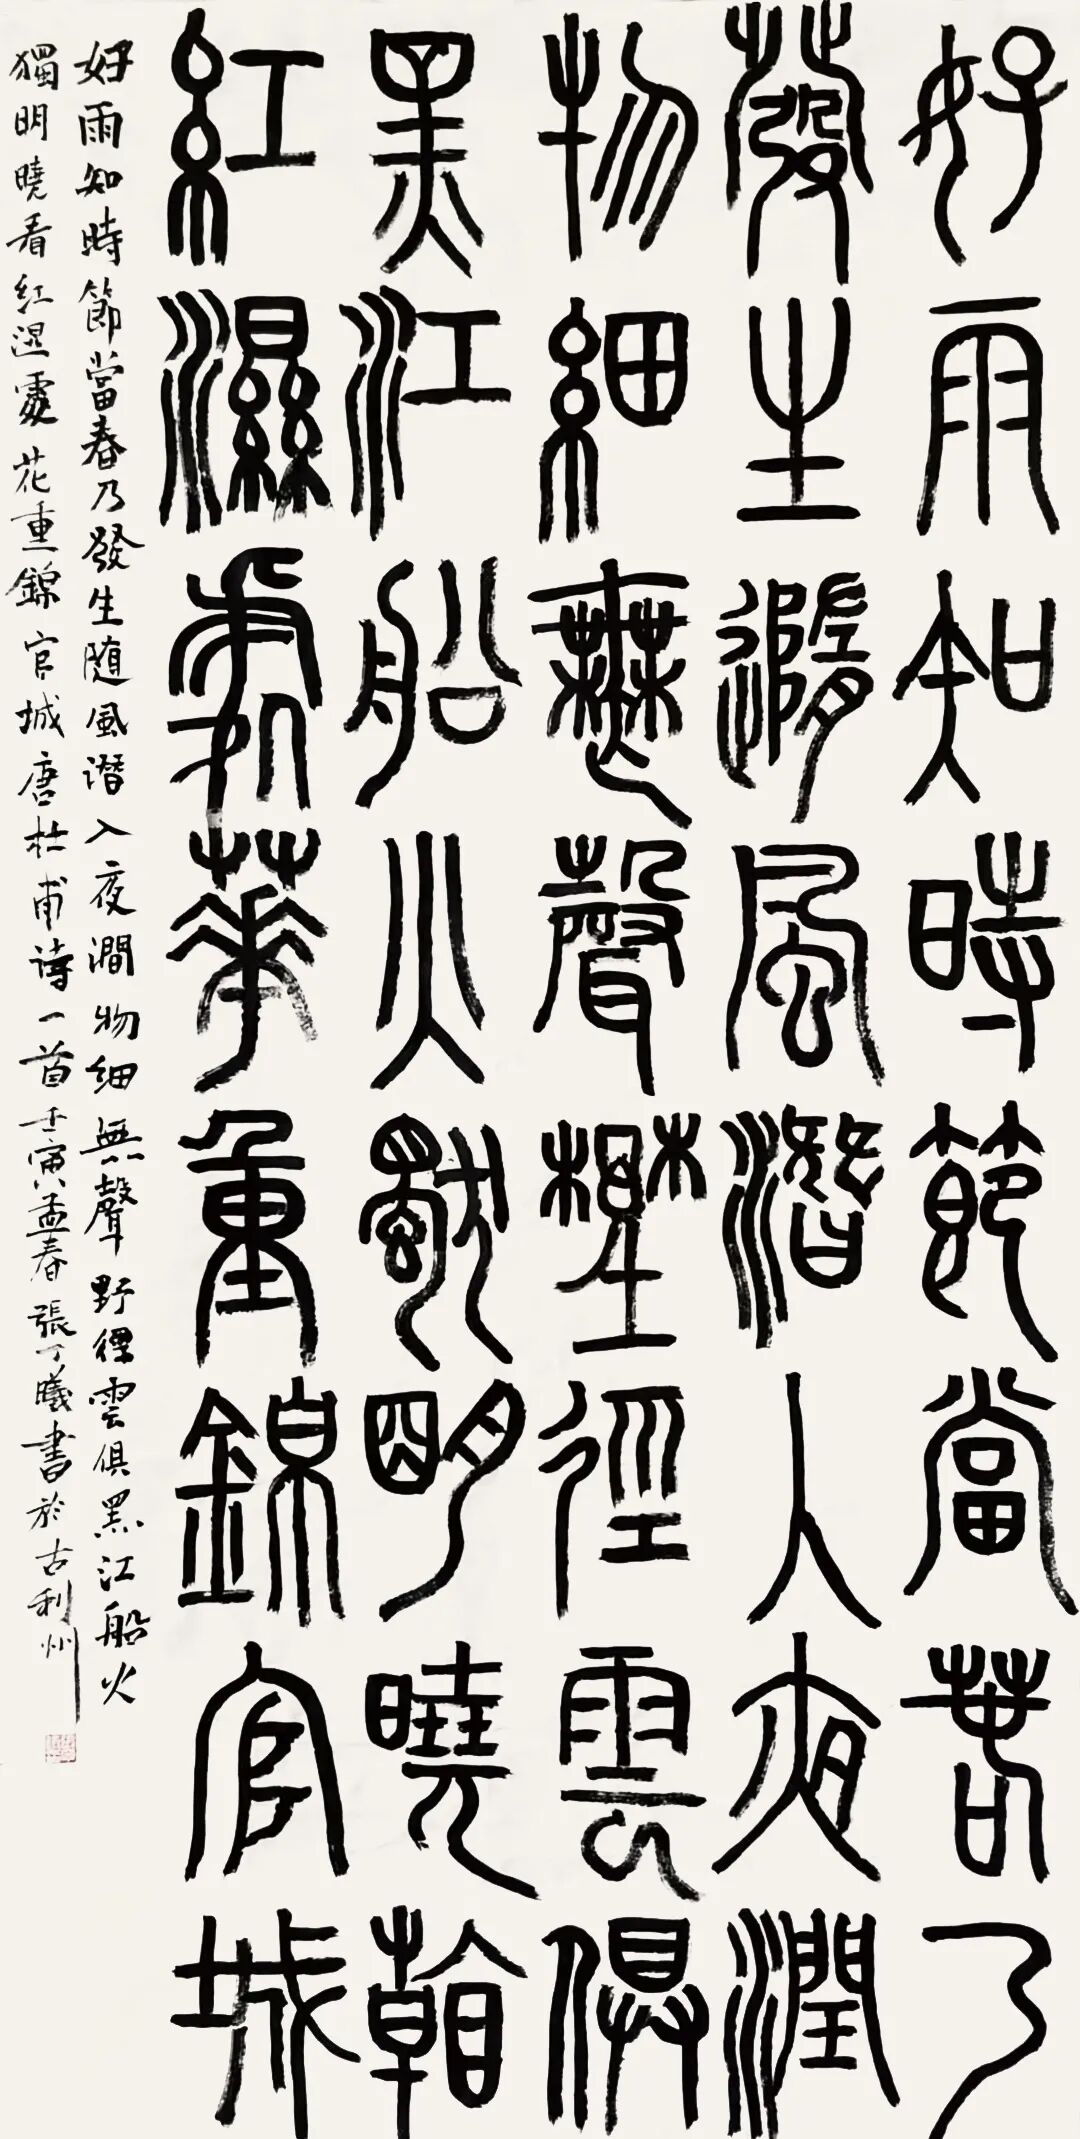 好雨知時節當萅乃
發生隨風潛入夜潤
物細無聲野徑雲俱
黑江船火獨明曉看
紅濕處華重錦官城
好雨知時節當春乃發生随風潜入夜潤物细無聲野徑雲俱黑江船火
獨明曉看红濕處花重錦官城唐杜甫诗一首壬寅孟春張丁曦書於古利州